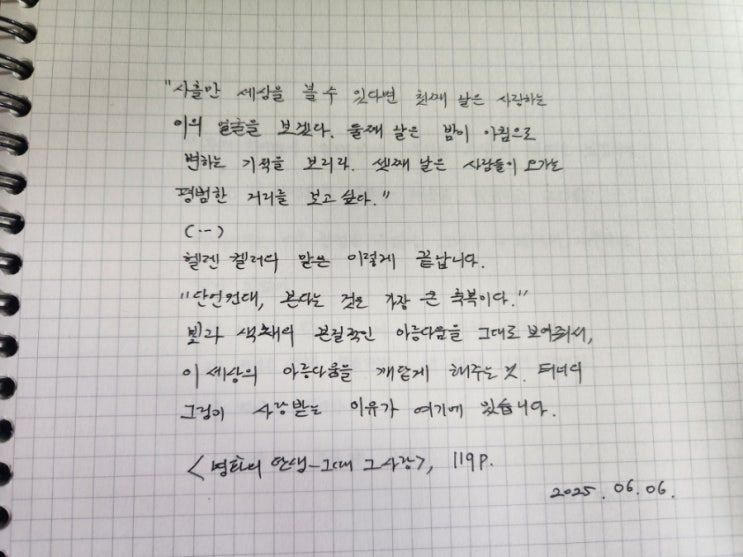 "사흘만 세상을 볼 수 있다면 첫째 날은 사랑하는
이의 얼굴을 보겠다. 둘째 날은 밤이 아침으로
변하는 기적을 보리라. 셋째 날은 사람들이 오가는
평범한 거리를 보고 싶다."
(…)
헬렌 켈러의 말은 이렇게 끝납니다.
"단언컨대, 본다는 것은 가장 큰 축복이다."
빛과 색채의 본질적인 아름다움을 그대로 보여줘서,
이 세상의 아름다움을 깨닫게 해주는 것. 터너의
그림이 사랑받는 이유가 여기에 있습니다.
<명화의 탄생-그때 그 사람>, 119p.
2025. 06. 06.